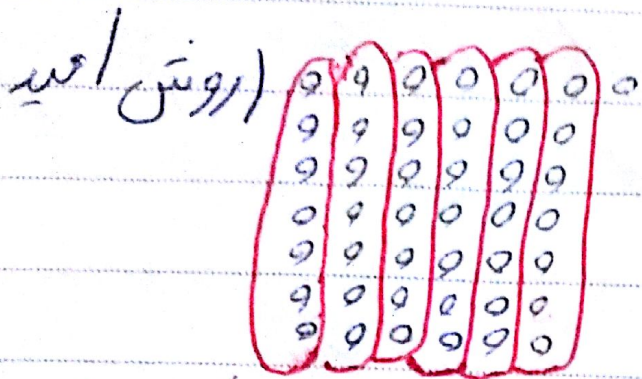 روش امید